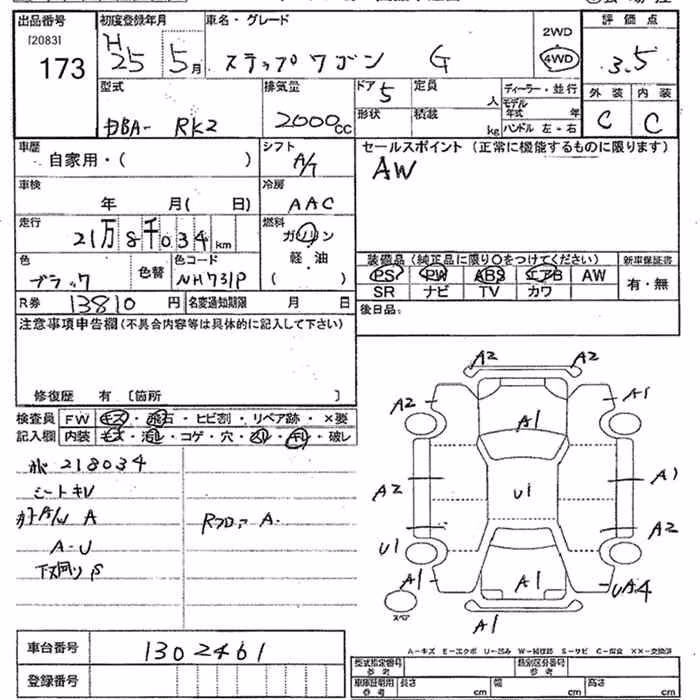 出品番号 初度登録年月 車名・グレード 2WD 評価点
[2083] H25 5月 ステップワゴン G 4WD 3.5
173
型式 排気量 ドア 5 定員 人 ディーラー・並行 外装 内装
DBA- RK2 2000cc 形状 積載 kg モデル年式 年 C C
ハンドル 左・右
車歴 シフト セールスポイント (正常に機能するものに限ります)
自家用・( ) A/T AW
車検 冷房
年 月( 日) AAC
走行 燃料
21万8千034km ガソリン
色 色替 色コード 軽・油 装備品 (純正品に限り○をつけてください) 新車保証書
ブラック NH731P ( ) PS PW ABS エアB AW 有・無
SR ナビ TV カワ
R券 13810円 名変通知期限 月 日 後日品:
注意事項申告欄(不具合内容等は具体的に記入して下さい)
修復歴 有 〔箇所 〕
検査員 FW キズ・飛石・ヒビ割・リペア跡・×要
記入欄 内装 キズ・汚レ・コゲ・穴・スレ・キレ・破レ
218034
シートキレ
A/W A
Rフロアー A.
A-U
下廻りS
車台番号 1302461
登録番号
A2 A2
A2 A1 A1
A2 U1 A1
A2
U1
A1 A1 UA4
スペア
A1
A-キズ E-エクボ U-凹み W-補修跡 S-サビ C-腐食 XX-交換済
型式指定番号 参考 類別区分番号 参考
車庫証明用 参考 長さ cm 幅 cm 高さ cm